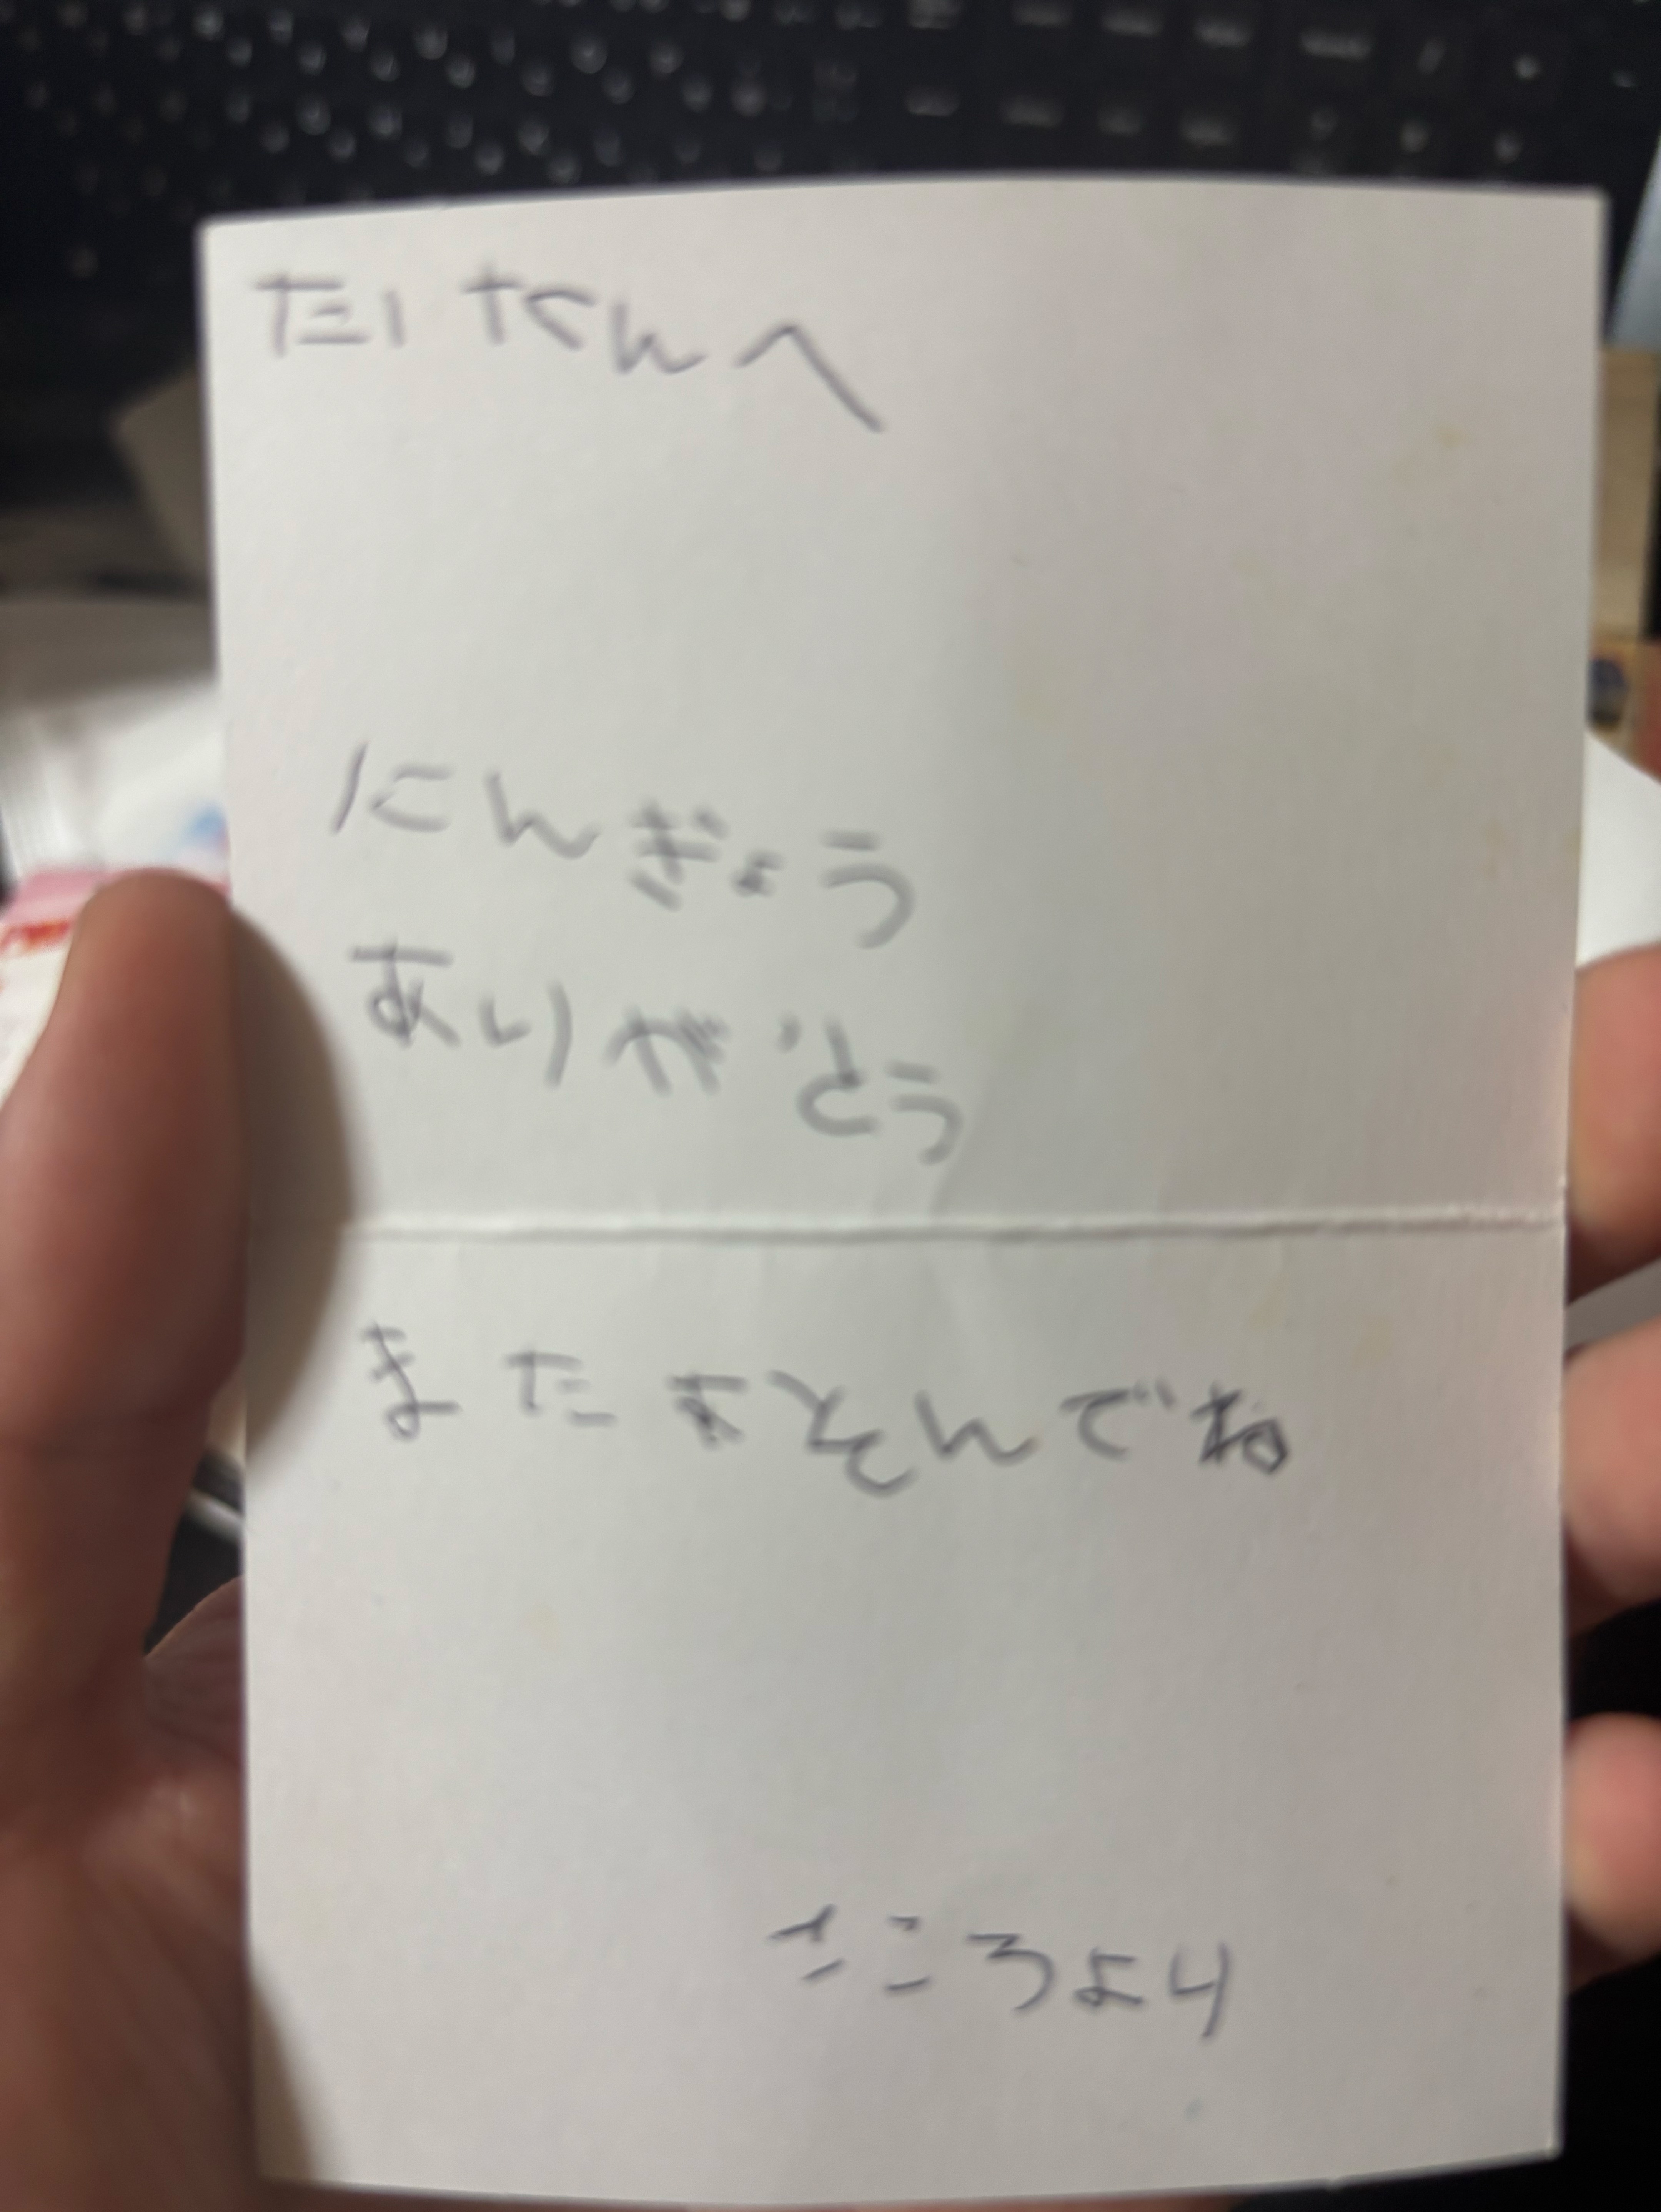 たいたんへ
にんぎょう
ありがとう
またあそんでね
こころより